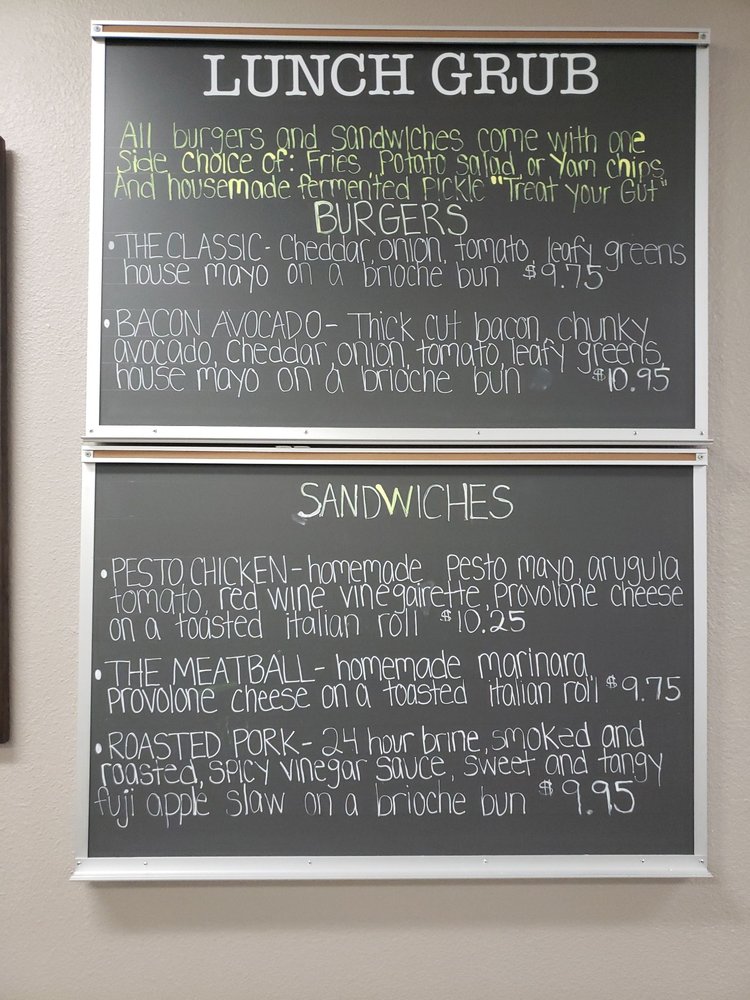 LUNCH GRUB
All burgers and sandwiches come with one
side choice of: Fries, Potato salad, or Yam chips
And housemade fermented pickle "Treat your Gut"
BURGERS
• THE CLASSIC - Cheddar, onion, tomato, leafy greens
house mayo on a brioche bun $9.75
• BACON AVOCADO - Thick cut bacon, chunky
avocado, cheddar, onion, tomato, leafy greens,
house mayo on a brioche bun $10.95
SANDWICHES
• PESTO CHICKEN - homemade Pesto mayo, arugula
tomato, red wine vinegairette, Provolone cheese
on a toasted italian roll $10.25
• THE MEATBALL - homemade marinara,
Provolone cheese on a toasted italian roll $9.75
• ROASTED PORK - 24 hour brine, smoked and
roasted, spicy vinegar sauce, sweet and tangy
fuji apple slaw on a brioche bun $9.95